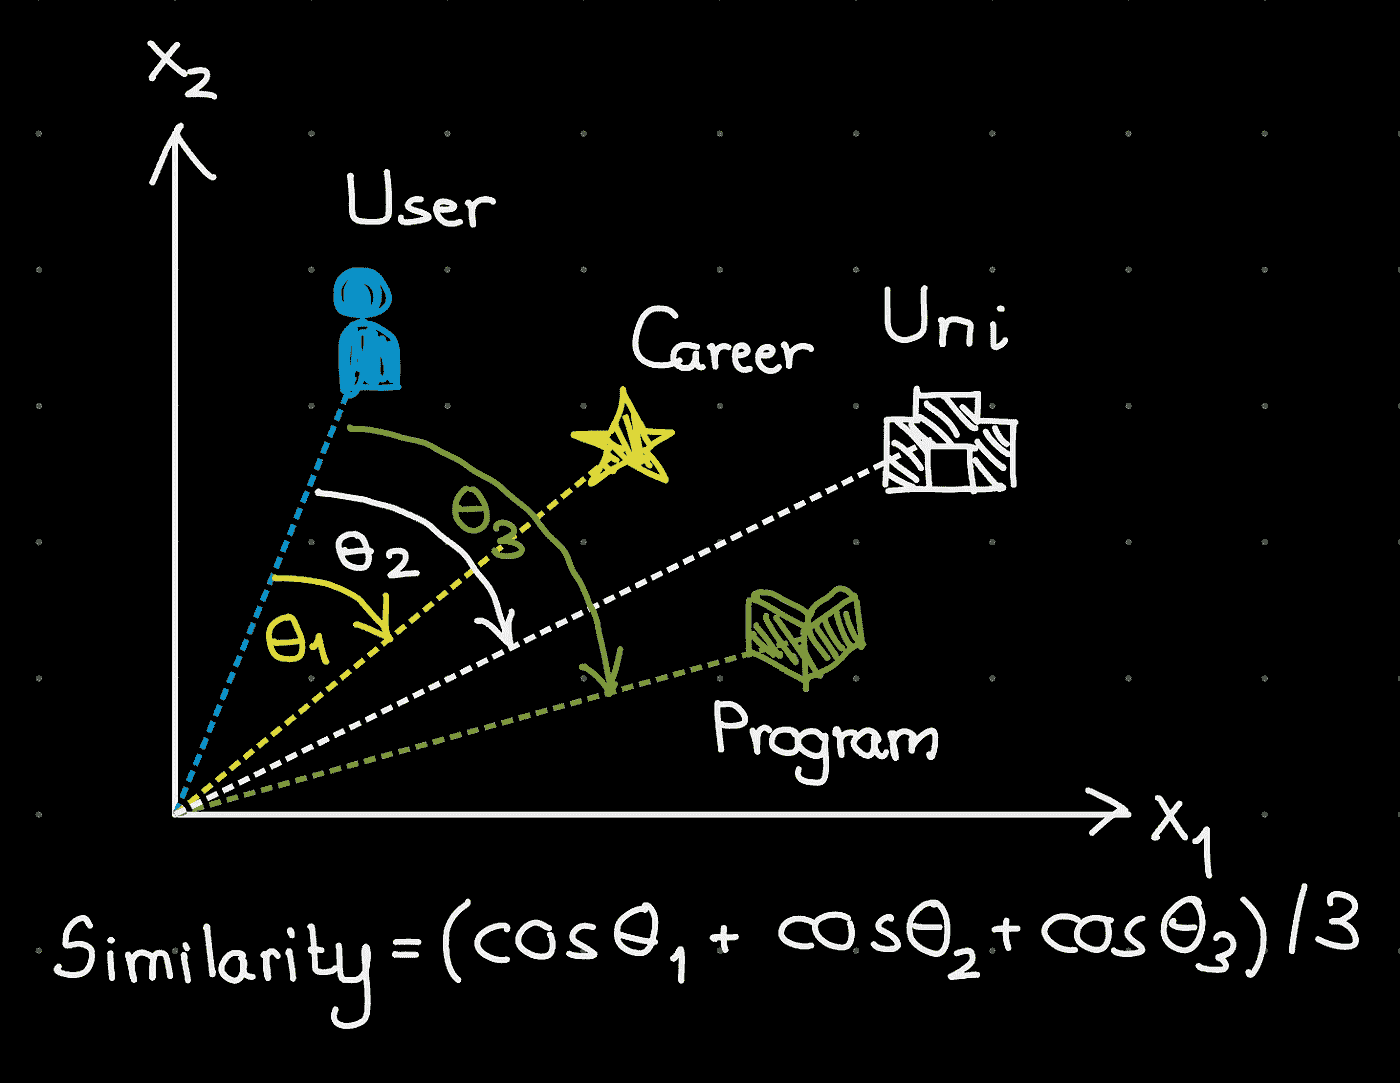 X₂
User
Career
Uni
θ₃
θ₂
θ₁
Program
X₁
Similarity = (cosθ₁ + cosθ₂ + cosθ₃)/3